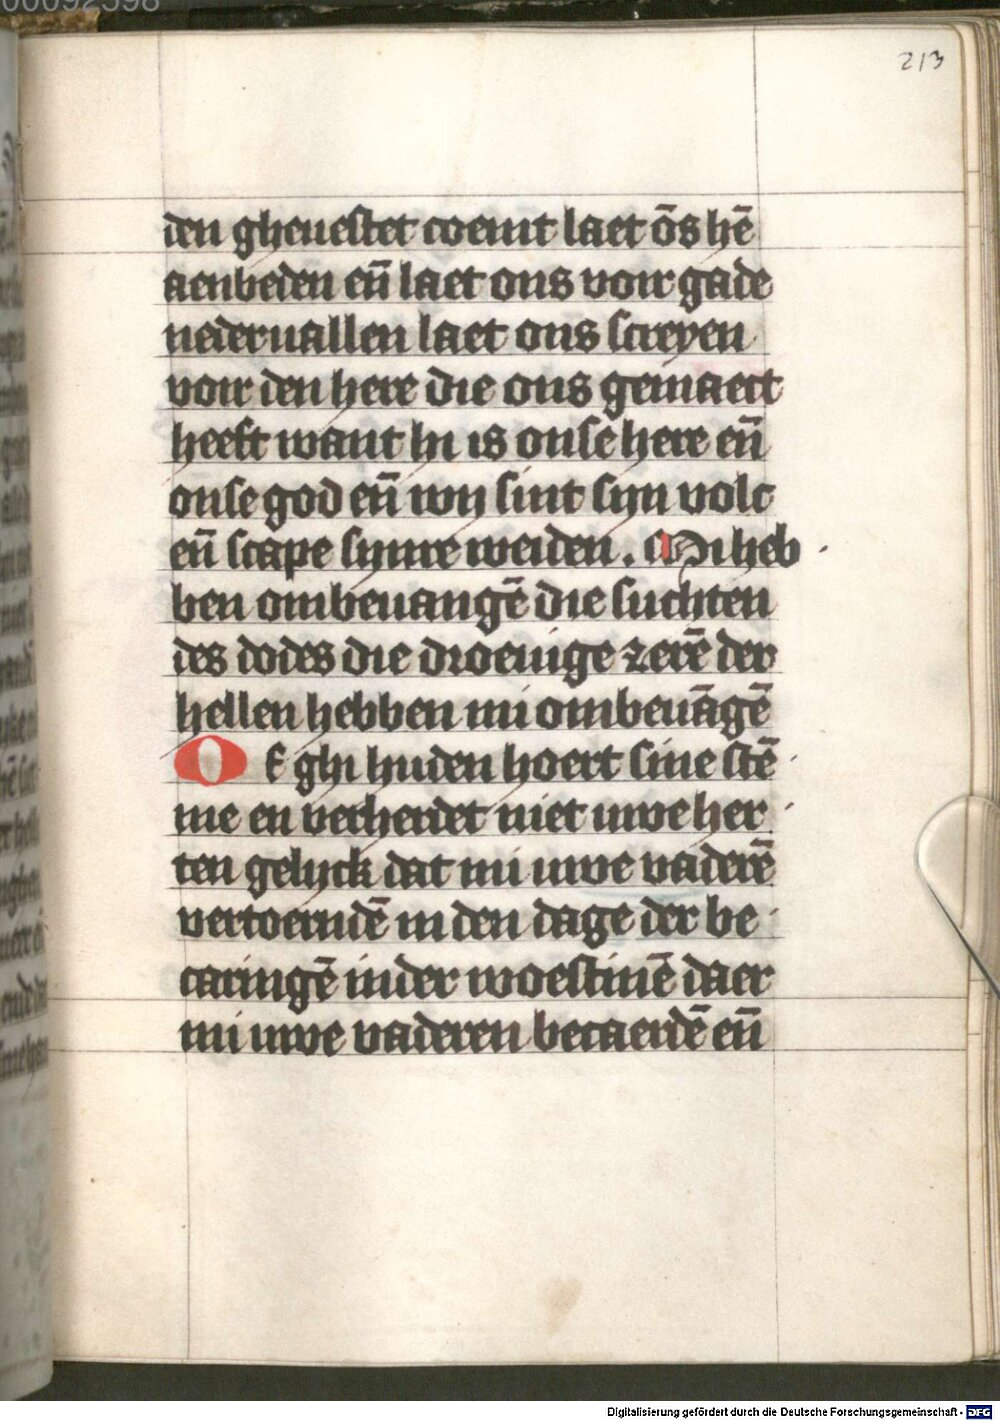 00092598
213
den gheuestet coemt laet ōs hē
aenbeden eñ laet ons voir gade
nedervallen laet ons screyen
voir den here die ons gemaect
heeft want hi is onse here eñ
onse god eñ wij sint sijn volc
eñ scape sijnre weiden. Mi heb
ben ombeuangē die suchten
des dodes die droeuige zerē der
hellen hebben mi ombeuāgē
O F ghi huden hoert sine stē
me en verherdet niet uwe her
ten gelijck dat mi uwe vaderē
vertoerndē in den dage der be
caringē inder woestinē daer
mi uwe vaderen becaerdē eñ
Digitalisierung gefördert durch die Deutsche Forschungsgemeinschaft - DFG